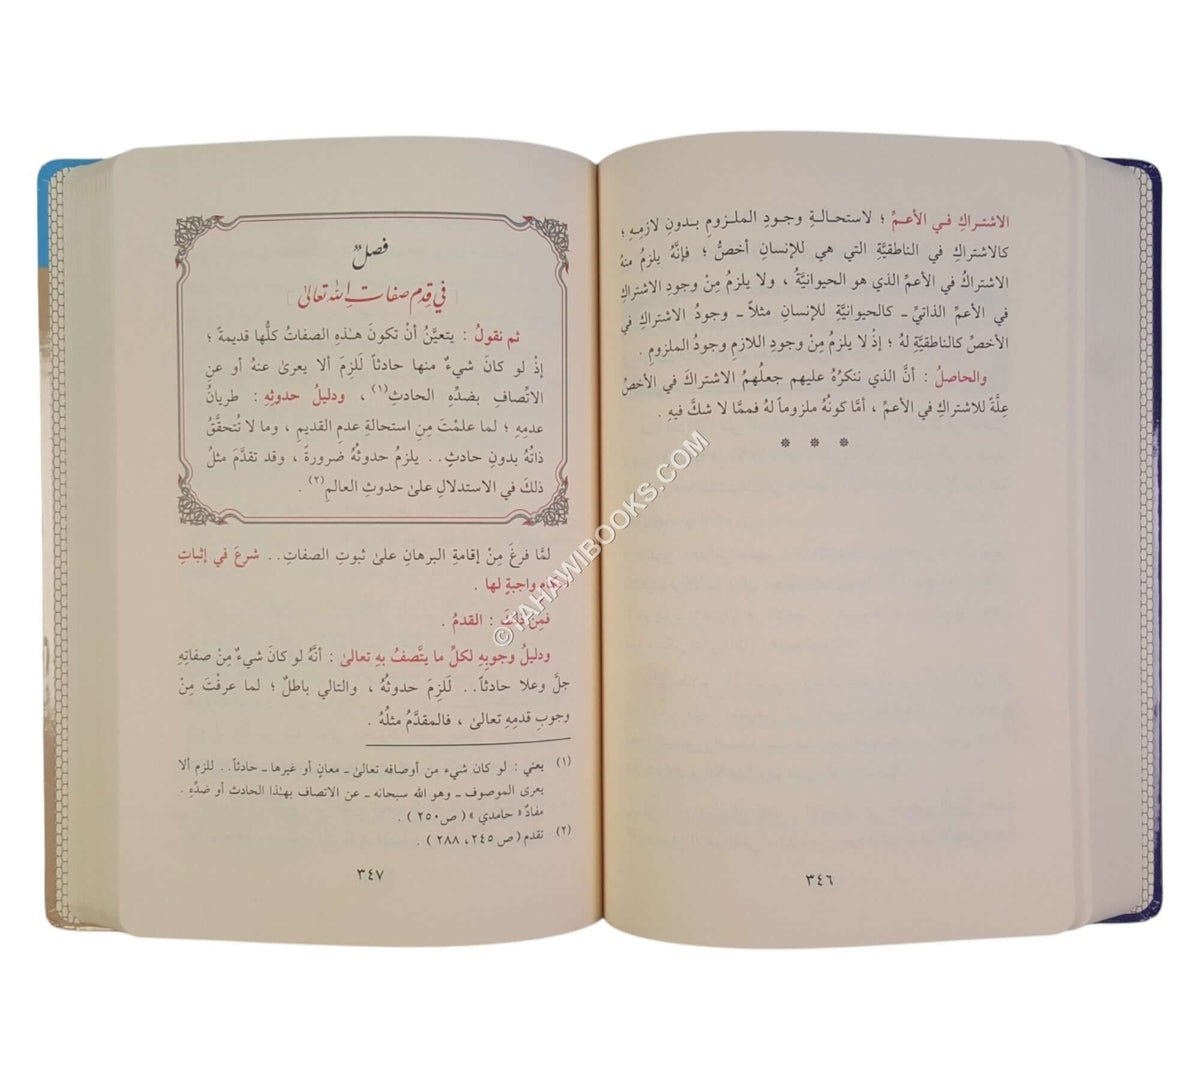 الاشتـراكِ فـي الأعـمِّ ؛ لاستحـالـةِ وجـودِ الملـزومِ بـدونِ لازمِـهِ ؛
كالاشتراكِ في الناطقيَّةِ التي هي للإنسانِ أخصُّ ؛ فإنَّهُ يلزمُ منهُ
الاشتراكُ في الأعمِّ الذي هو الحيوانيَّةُ ، ولا يلزمُ مِنْ وجودِ الاشتراكِ
في الأعمِّ الذاتيِّ ـ كالحيوانيَّةِ للإنسانِ مثلاً ـ وجودُ الاشتراكِ في
الأخصِّ كالناطقيَّةِ لهُ ؛ إذْ لا يلزمُ مِنْ وجودِ اللازمِ وجودُ الملزومِ .
والحاصلُ : أنَّ الذي ننكرُهُ عليهم جعلُهمُ الاشتراكَ في الأخصِّ
علَّةً للاشتراكِ في الأعمِّ ، أمَّا كونُهُ ملزوماً لهُ فممَّا لا شكَّ فيهِ .
* * *
٣٤٦
فصلٌ
[ في قِدَمِ صفاتِ اللهِ تعالىٰ ]
ثم نقولُ : يتعيَّنُ أنْ تكونَ هـٰذهِ الصفاتُ كلُّها قديمةً ؛
إذْ لو كانَ شيءٌ منها حادثاً لَلزِمَ ألا يعرىٰ عنهُ أو عنِ
الاتِّصافِ بضدِّهِ الحادثِ(١) ، ودليلُ حدوثِهِ : طريانُ
عدمِهِ ؛ لما علمْتَ مِنِ استحالةِ عدمِ القديمِ ، وما لا تُتحقَّقُ
ذاتُهُ بدونِ حادثٍ . . يلزمُ حدوثُهُ ضرورةً ، وقد تقدَّمَ مثلُ
ذلكَ في الاستدلالِ علىٰ حدوثِ العالمِ(٢) .
لمَّا فرغَ مِنْ إقامةِ البرهانِ علىٰ ثبوتِ الصفاتِ . . شرعَ في إثباتِ
أحكامٍ واجبةٍ لها .
فمِنْ ذلكَ : القدمُ .
ودليلُ وجوبِهِ لكلِّ ما يتَّصفُ بهِ تعالىٰ : أنَّهُ لو كانَ شيءٌ مِنْ صفاتِهِ
جلَّ وعلا حادثاً . . لَلزِمَ حدوثُهُ ، والتالي باطلٌ ؛ لما عرفْتَ مِنْ
وجوبِ قدمِهِ تعالىٰ ، فالمقدَّمُ مثلُهُ .
(١) يعني : لو كان شيء من أوصافه تعالىٰ ـ معانٍ أو غيرها ـ حادثاً . . للزم ألا
يعرى الموصوف ـ وهو الله سبحانه ـ عن الاتصاف بهـٰذا الحادث أو ضدِّه .
مفادٌ « حامدي » ( ص ٢٥٠ ) .
(٢) تقدم ( ص ٢٤٥ ، ٢٨٨ ) .
٣٤٧
©TAHAWIBOOKS.COM